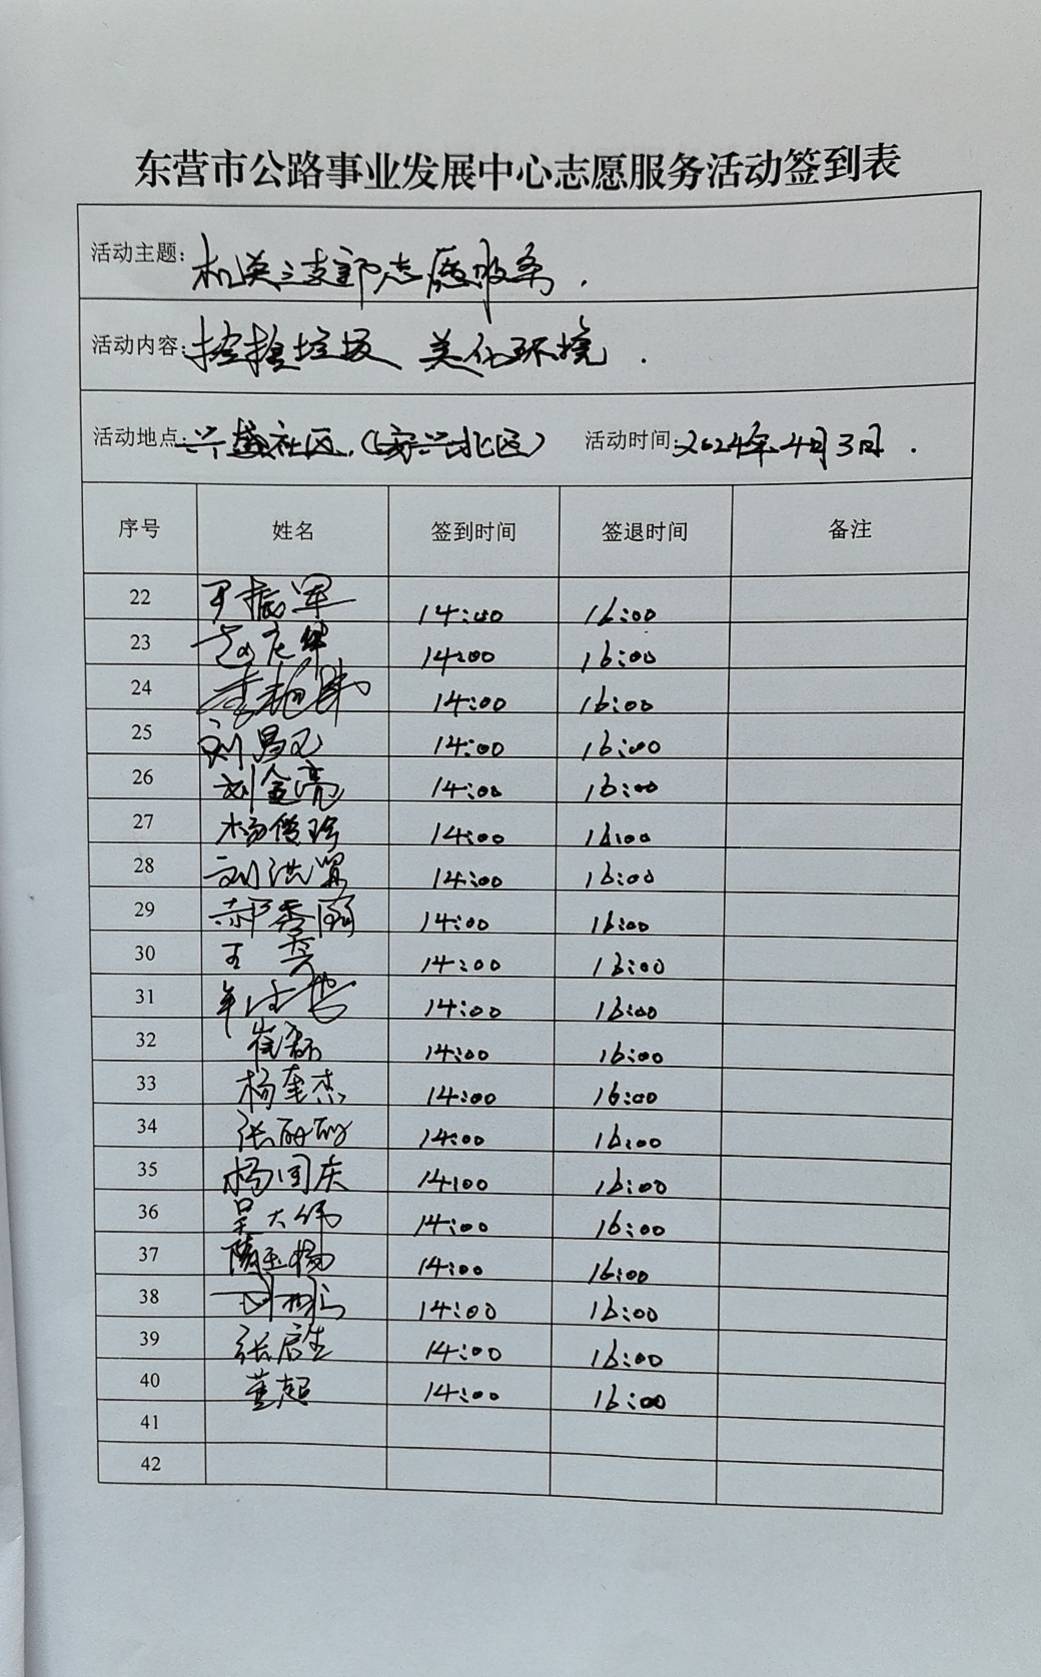 东营市公路事业发展中心志愿服务活动签到表
活动主题: 机关三支部志愿服务.
活动内容: 捡垃圾 美化环境.
活动地点: 社区.(北区) 活动时间: 2024年4月3日.
序号 姓名 签到时间 签退时间 备注
22 振军 14:00 16:00
23 赵庆华 14:00 16:00
24 李旭 14:00 16:00
25 刘昌 14:00 16:00
26 刘金亮 14:00 16:00
27 杨俊玲 14:00 16:00
28 刘洪 14:00 16:00
29 郝秀丽 14:00 16:00
30 王 14:00 16:00
31 14:00 16:00
32 崔磊 14:00 16:00
33 杨奎杰 14:00 16:00
34 张丽丽 14:00 16:00
35 杨国庆 14:00 16:00
36 大伟 14:00 16:00
37 隋玉杨 14:00 16:00
38 14:00 16:00
39 张启生 14:00 16:00
40 董超 14:00 16:00
41
42